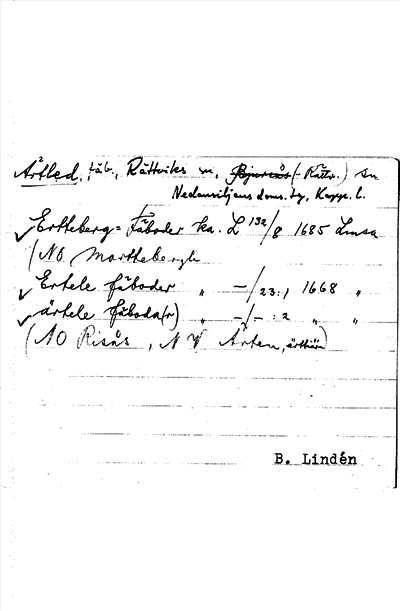 Ärtled, fäb., Rättviks sn, Bjursås (-Rättv.) sn
Nedansiljans doms. tg, Kopp. l.
Ertteberg= Fäboder ka. L 132/8 1685 Lmsa
(NO Morttebergh
Ertele fäboder " -/23:1 1668 "
ärtele fäboda(r) " -/- :2 " "
(NO Risås, NV Ärten,
B. Lindén